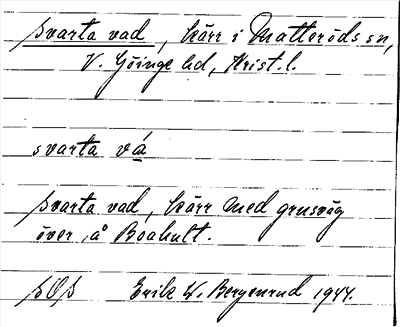 svarta vad, kärr i Matteröds sn,
V. Göinge hd, Krist. l.
svarta vá
svarta vad, kärr med grusväg
över, å Boahult.
sOs Erik W. Bergenrud 1944.